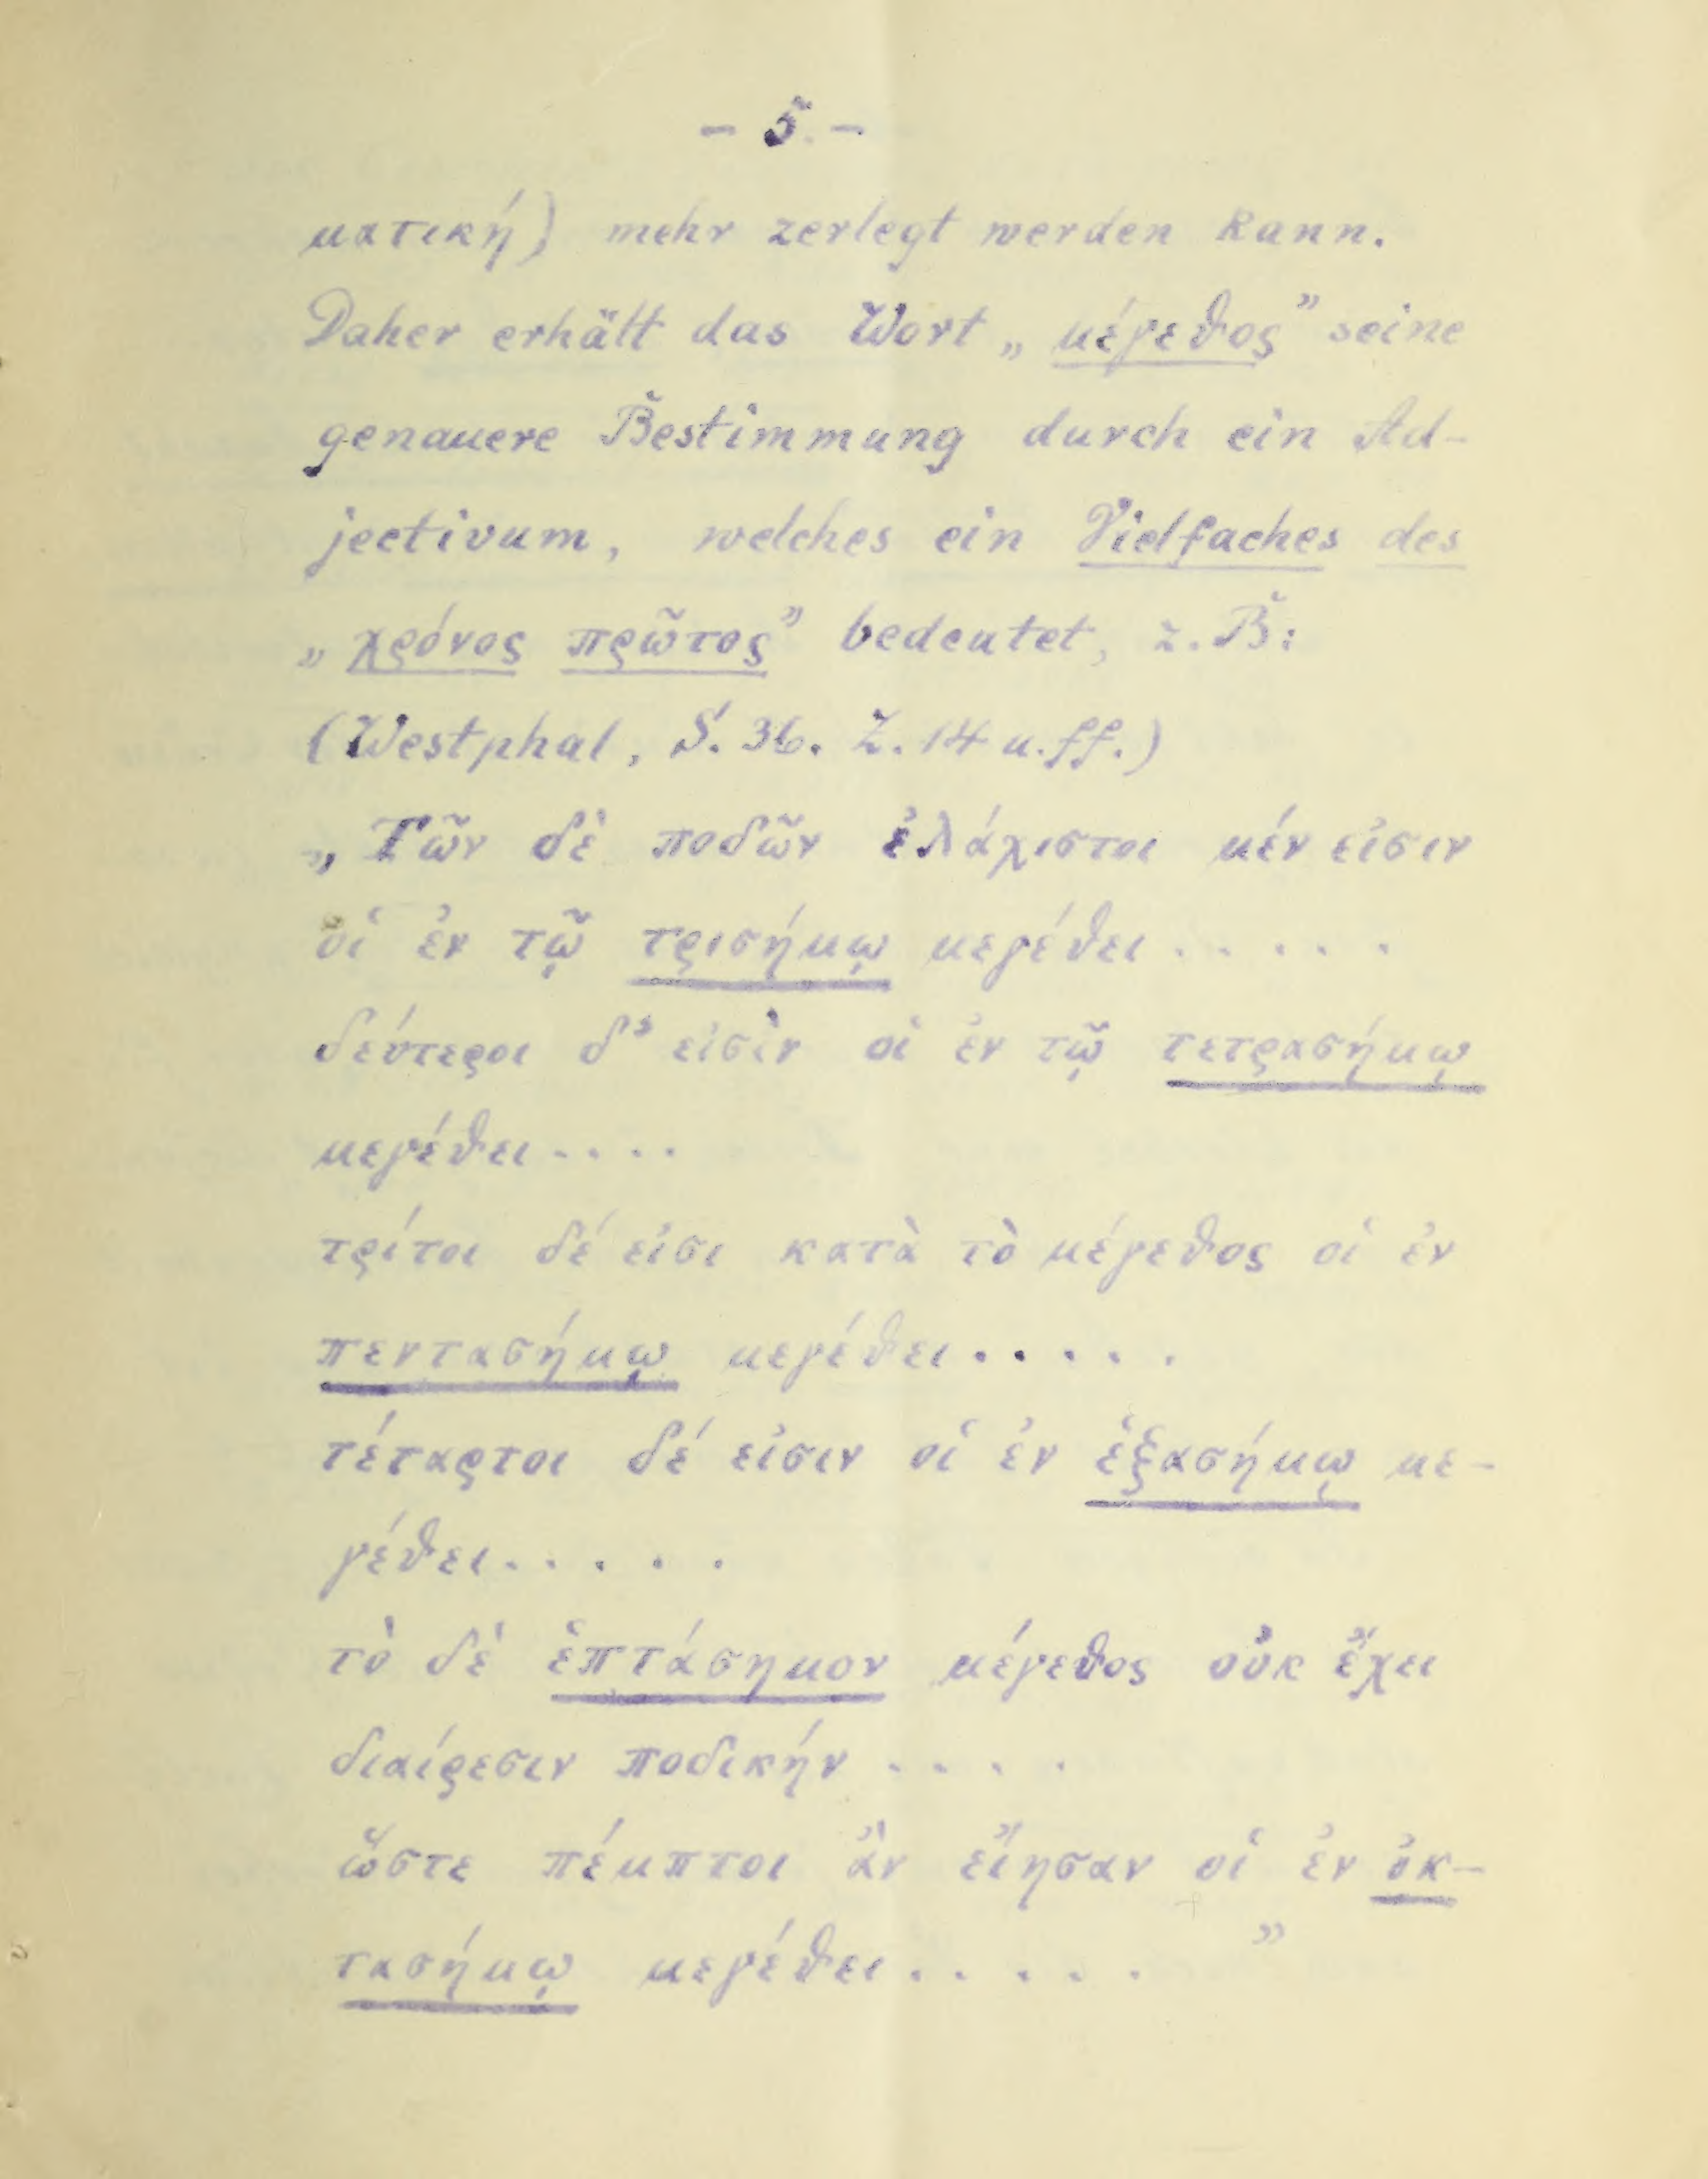 - 5 -
ματική) mehr zerlegt werden kann.
Daher erhält das Wort „μέγεθος” seine
genauere Bestimmung durch ein Ad-
jectivum, welches ein Vielfaches des
„χρόνος πρῶτος” bedeutet, z. B:
(Westphal, S. 36. Z. 14 u. ff.)
„Τῶν δὲ ποδῶν ἐλάχιστοι μέν εἰσιν
οἱ ἐν τῷ τρισήμῳ μεγέθει . . . . .
δεύτεροι δ’ εἰσὶν οἱ ἐν τῷ τετρασήμῳ
μεγέθει . . . .
τρίτοι δέ εἰσι κατὰ τὸ μέγεθος οἱ ἐν
πεντασήμῳ μεγέθει . . . . .
τέταρτοι δέ εἰσιν οἱ ἐν ἑξασήμῳ με-
γέθει . . . . .
τὸ δὲ ἑπτάσημον μέγεθος οὐκ ἔχει
διαίρεσιν ποδικήν . . . .
ὥστε πέμπτοι ἂν εἴησαν οἱ ἐν ὀκ-
τασήμῳ μεγέθει . . . . . ”